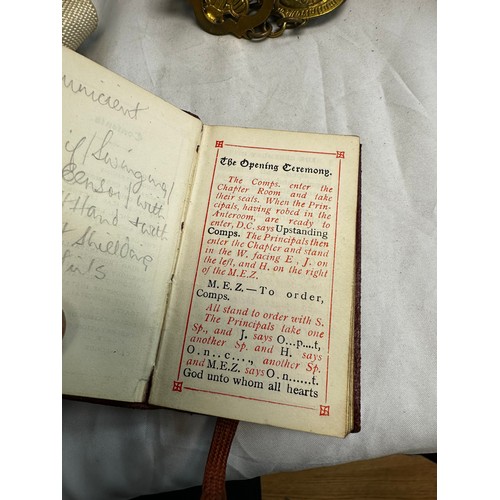 unicient
if/Swinging/
censor/with
Hand & with
Shielding
The Opening Ceremony.
The Comps. enter the
Chapter Room and take
their seals. When the Prin-
cipals, having robed in the
Anteroom, are ready to
enter, D.C. says Upstanding
Comps. The Principals then
enter the Chapter and stand
in the W. facing E., J. on
the left, and H. on the right
of the M.E.Z.
M. E. Z.—To order,
Comps.
All stand to order with S.
The Principals take one
Sp., and J. says O...p....t,
another Sp. and H. says
O.n..c...., another Sp.
and M.E.Z. says O.n......t.
God unto whom all hearts